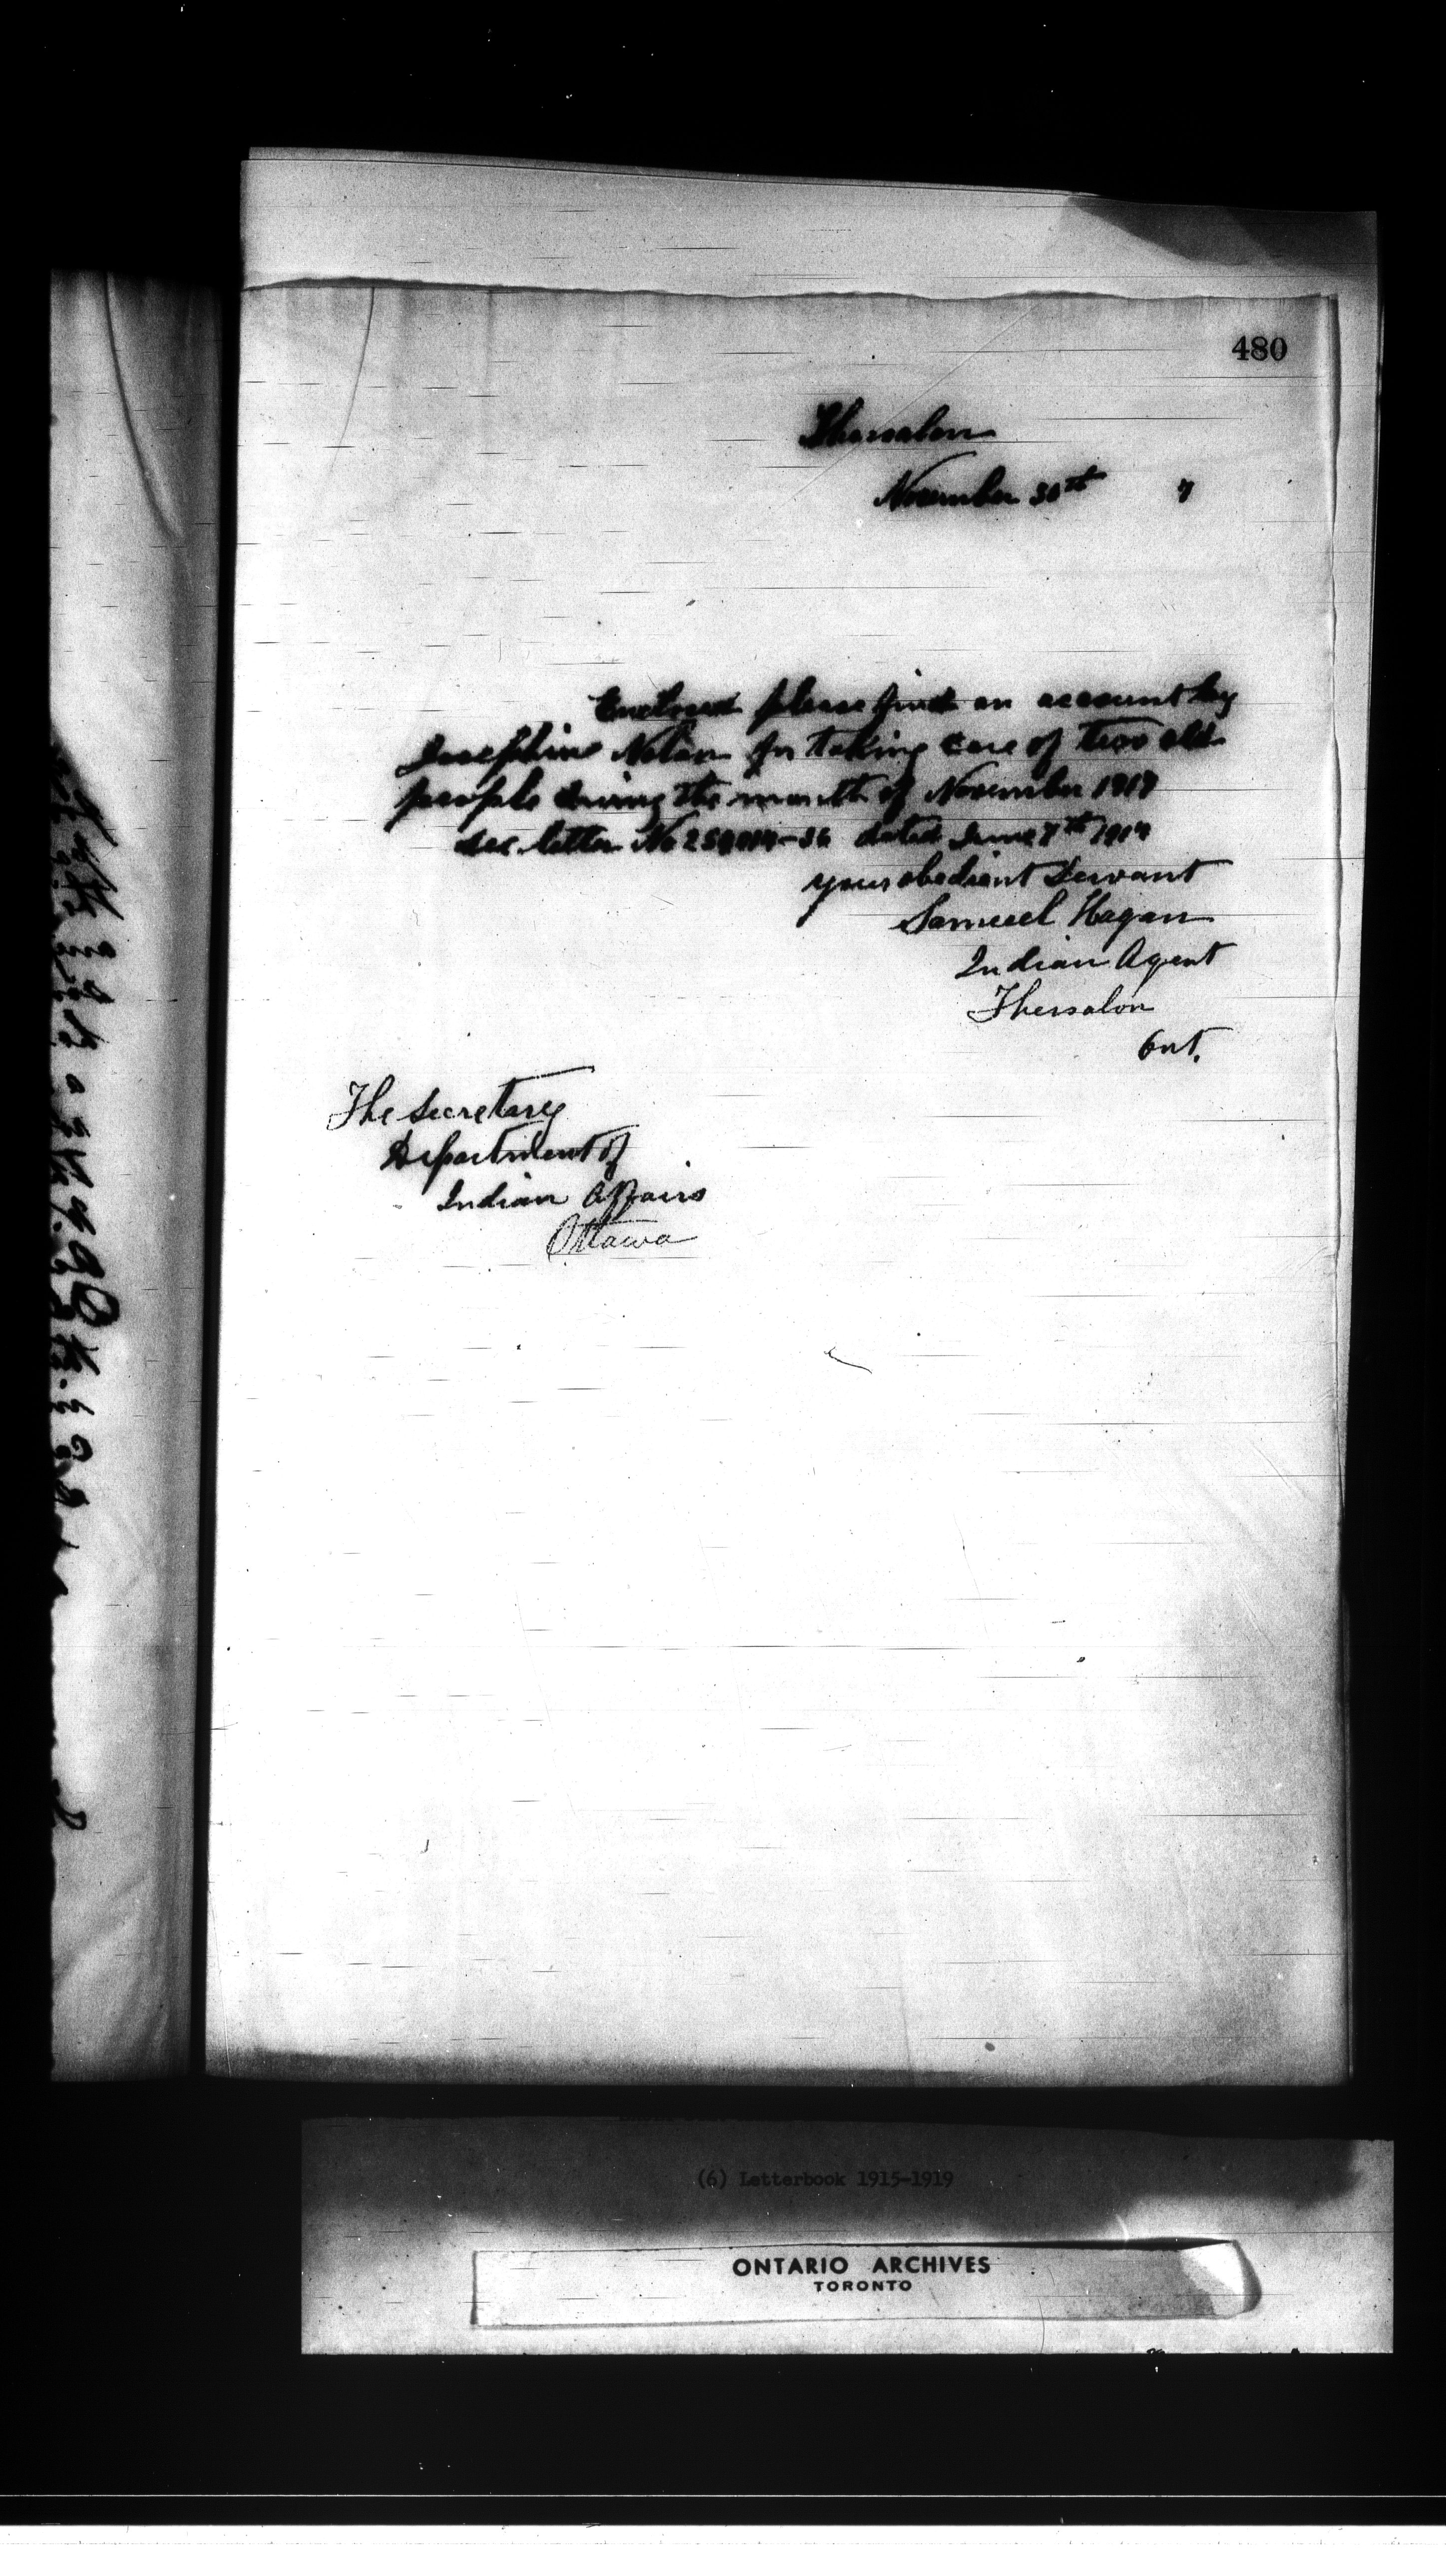 480
Thessalon
November 30th 7
Enclosed please find an account by
Josephine Nolan for taking care of two old
people during the month of November 1917
see letter No dated June 7th 1917
your obedient Servant
Samuel Hagan
Indian Agent
Thessalon
Ont.
The Secretary
Department of
Indian Affairs
Ottawa
(6) Letterbook 1915-1919
ONTARIO ARCHIVES
TORONTO